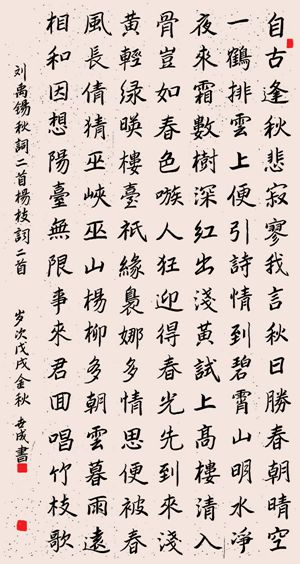 自古逢秋悲寂寥我言秋日勝春朝晴空
一鶴排雲上便引詩情到碧霄山明水凈
夜來霜數樹深紅出淺黃試上高樓清入
骨豈如春色嗾人狂迎得春光先到來淺
黃輕绿暎樓臺祇緣裊娜多情思便被春
風長倩猜巫峽巫山楊柳多朝雲暮雨遠
相和因想陽臺無限事來君囬唱竹枝歌
刘禹錫秋詞二首楊枝詞二首 岁次戊戌金秋 成書